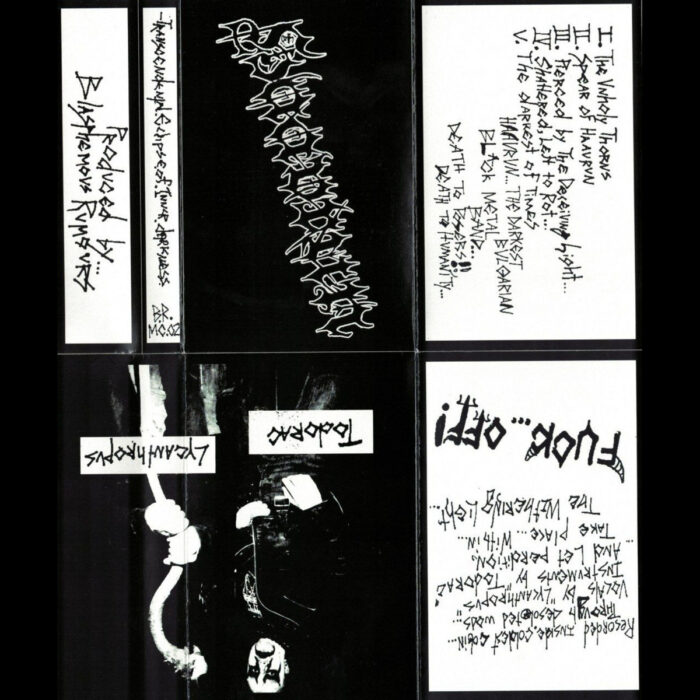 I. The Unholy Thorns
II. Spear of HAAVRUN
III. Pierced by The Deceiving Light...
IV. Shattered, Left to Rot...
V. The Darkest of Times
HAAVRUN... THE DARKEST
BLACK METAL BULGARIAN
BAND...
DEATH TO POSERS!!
DEATH TO HUMANITY...
Eclipse of... Inner darkness
B.R.
MC:02
Produced by...
Blasphemous Rumours
Todorac
Lycanthropus
FUCK... OFF!
Recorded inside coldest cabin...
Through desolated woods...
Vocals by "Lycanthropus"
Instruments by "Todorac"
And Let perdition,
Take place... within...
The Withering Light...